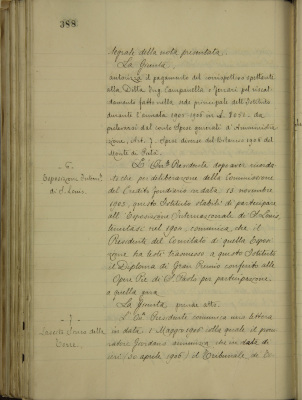 388
segrale della nota presentata.
La Giunta
autorizza il pagamento del corrispettivo spettante
alla Ditta Ing. Campanella e Gerani pel riscal-
damento fatto nella sede principale dell'Istituto
durante l'annata 1905-1906 in £. 7252. da
prelevarsi dal conto Spese generali d'Amministra-
zione, Art. 7. Spese diverse del Bilancio 1906 del
-6-
Esposizione
di S. Louis
Il Sig. Presidente dopo aver ricorda-
to che per deliberazione della Commissione
del Credito fondiario in data 13 novembre
1903, questo Istituto stabilì di partecipare
all'Esposizione Internazionale di St. Louis
tenutasi nel 1904, comunica che il
Presidente del Comitato di quella Esposi-
zione ha testè trasmesso a questo Istituto
il Diploma di Gran Premio conferito alle
Opere Pie di S. Paolo per partecipazione
a quella gara.
La Giunta prende atto.
-7-
della
Torre
Il Sig. Presidente comunica una lettera
in data 1 Maggio 1906 colla quale il procu-
ratore Giordano annunzia che in data di
ieri (30 aprile 1906) il Tribunale di